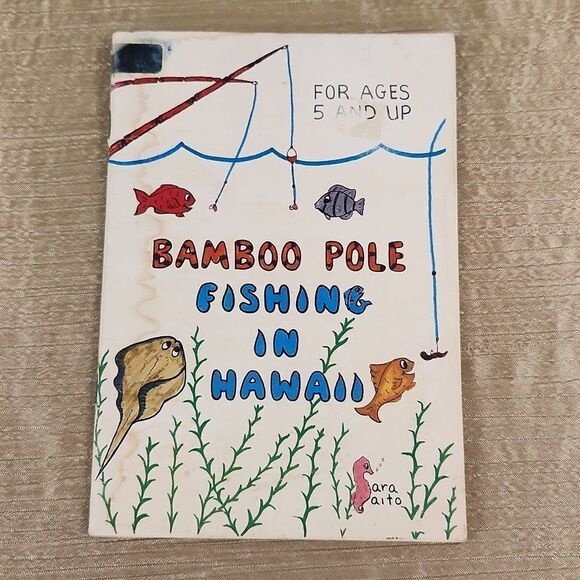 FOR AGES
5 AND UP
BAMBOO POLE
FISHING
IN
HAWAII
Sara
Saito